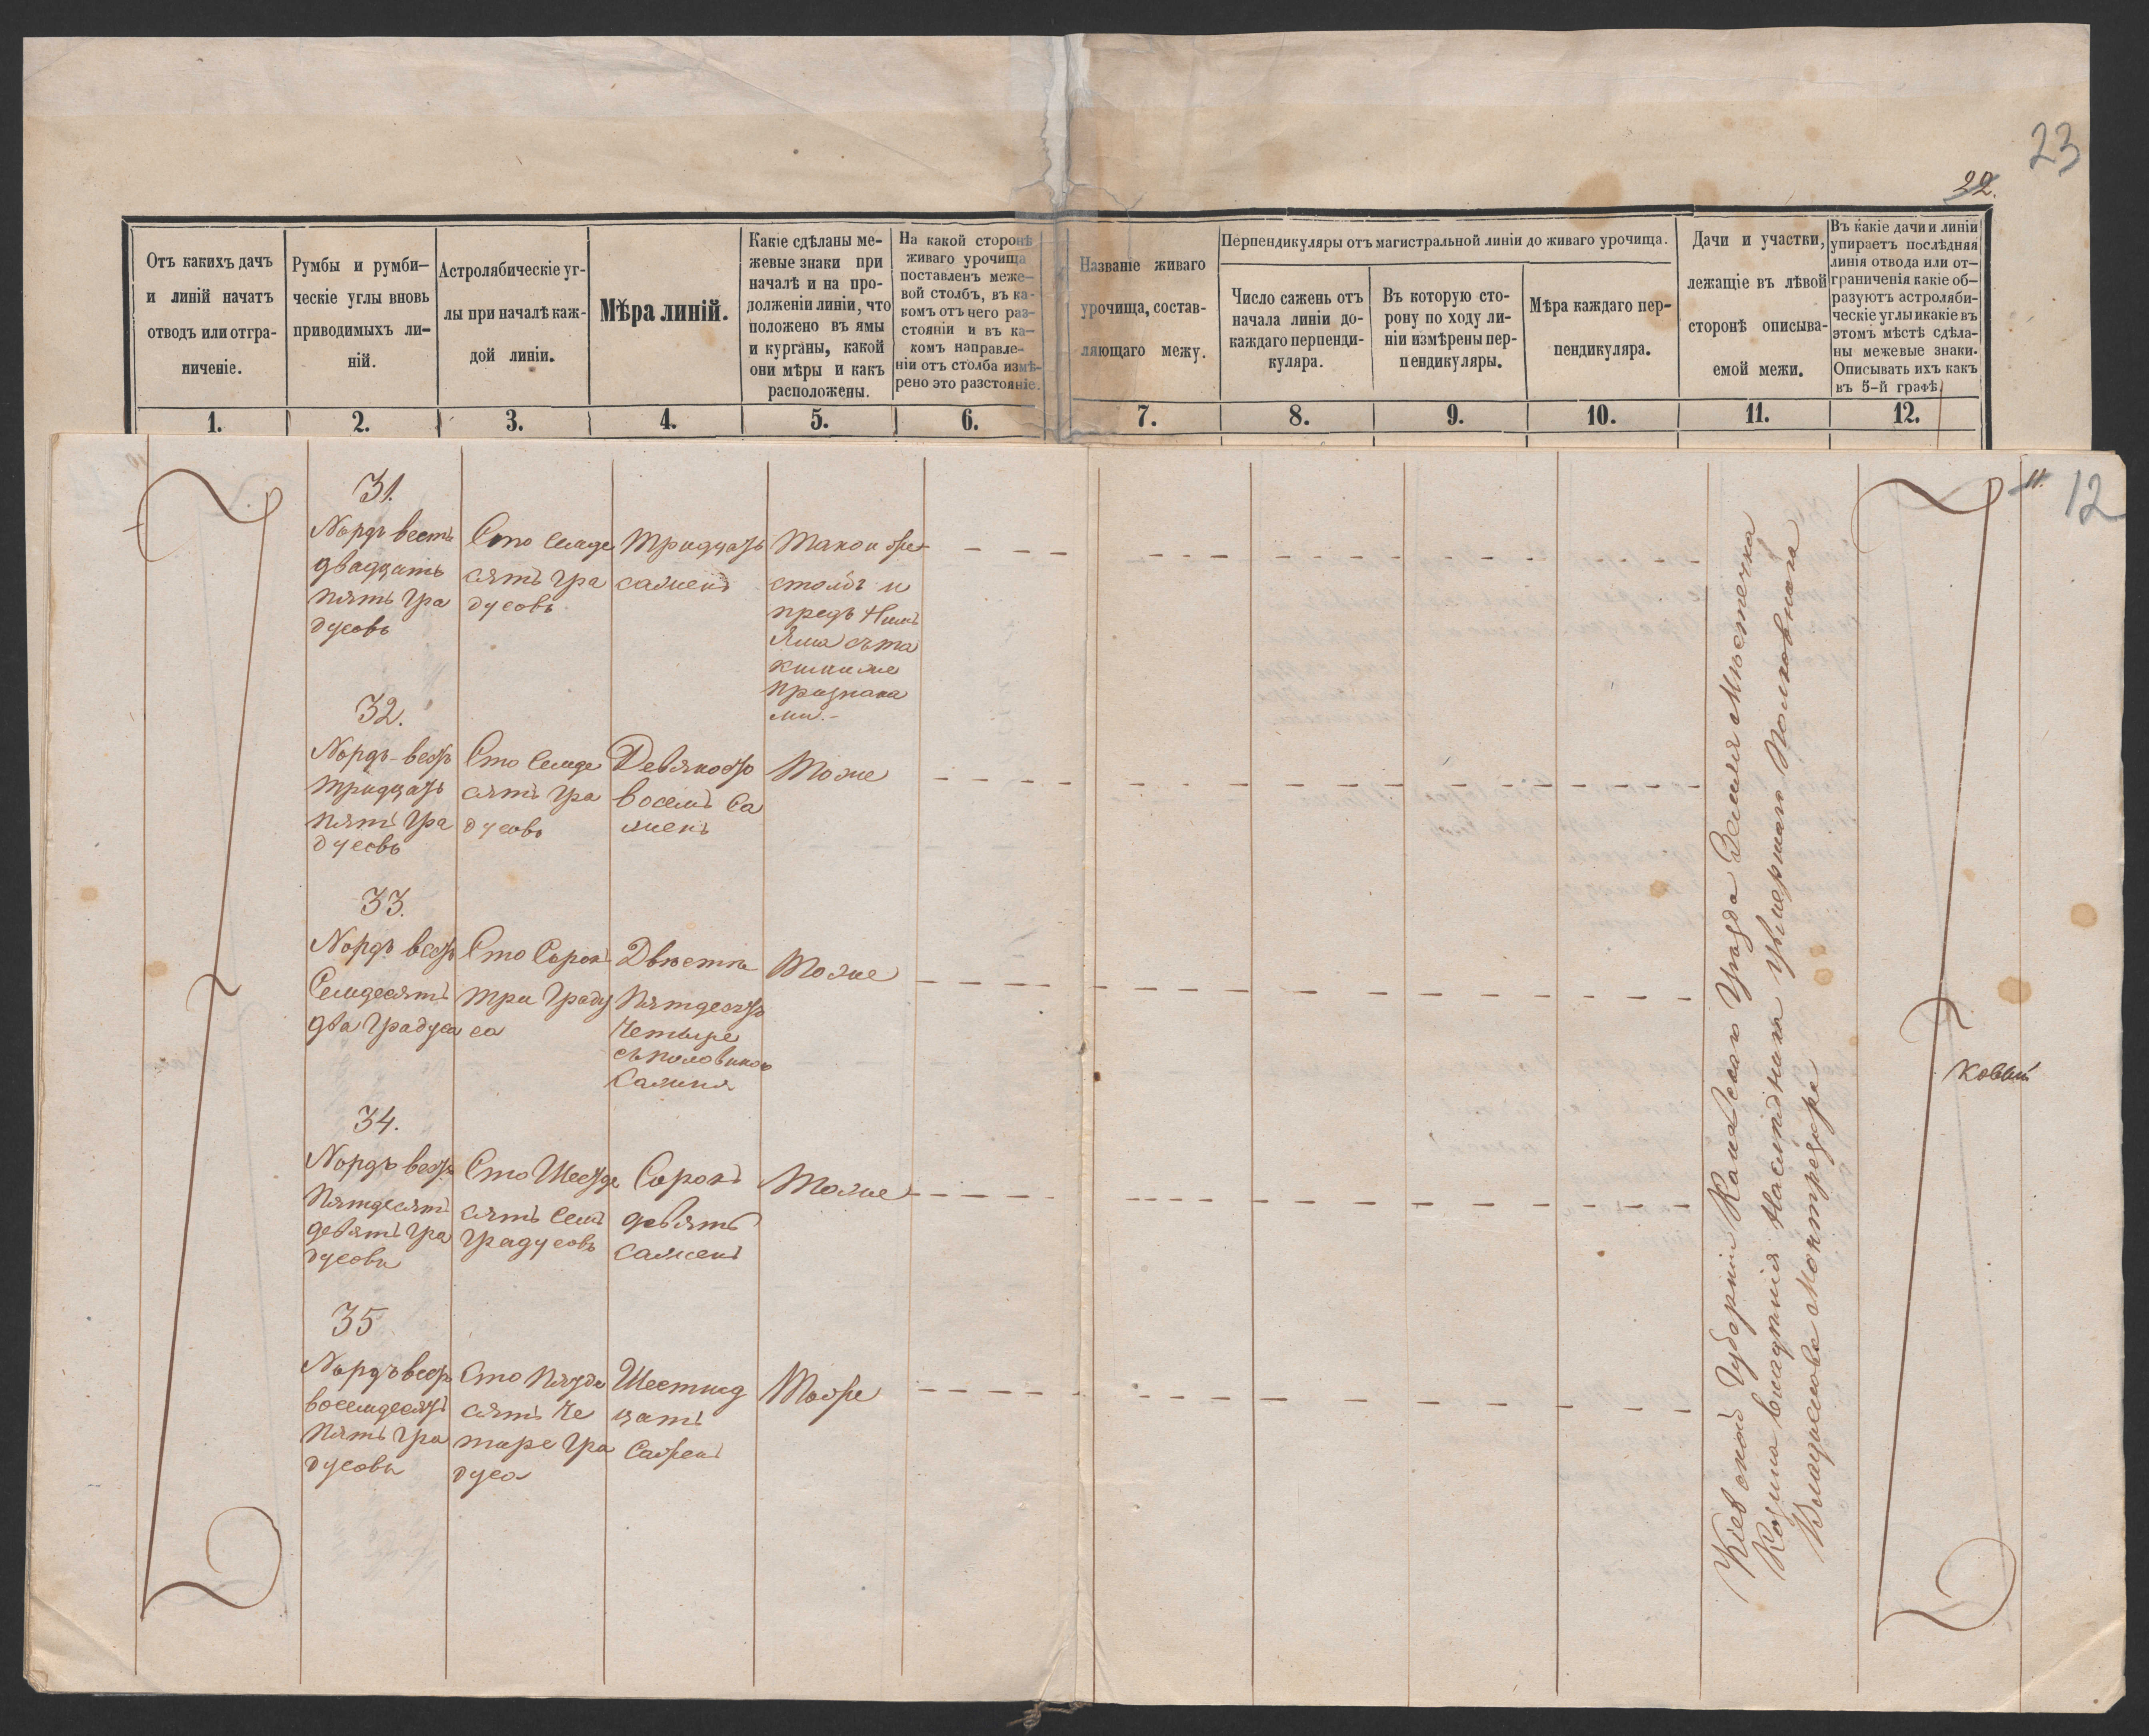 23
22.
Отъ какихъ дачъ
и линій начатъ
отводъ или отгра-
ниченіе.
Румбы и румби-
ческіе углы вновь
приводимыхъ ли-
ній.
Астролябическіе уг-
лы при началѣ каж-
дой линіи.
Мѣра линій.
Какіе сдѣланы ме-
жевые знаки при
началѣ и на про-
долженіи линіи, что
положено въ ямы
и курганы, какой
они мѣры и какъ
расположены.
На какой сторонѣ
живаго урочища
поставленъ меже-
вой столбъ, въ ка-
комъ отъ него раз-
стояніи и въ ка-
комъ направле-
ніи отъ столба измѣ-
рено это разстояніе.
Названіе живаго
урочища, состав-
ляющаго межу.
Перпендикуляры отъ магистральной линіи до живаго урочища.
Число сажень отъ
начала линіи до-
каждаго перпенди-
куляра.
Въ которую сто-
рону по ходу ли-
ніи измѣрены пер-
пендикуляры.
Мѣра каждаго пер-
пендикуляра.
Дачи и участки,
лежащіе въ лѣвой
сторонѣ описыва-
емой межи.
Въ какіе дачи и линіи
упираетъ послѣдняя
линія отвода или от-
граниченія какіе об-
разуютъ астроляби-
ческіе углы икакіе въ
этомъ мѣстѣ сдѣла-
ны межевые знаки.
Описывать ихъ какъ
въ 5-й графѣ.
1. 2. 3. 4. 5. 6. 7. 8. 9. 10. 11. 12.
11.
12
31.
Нордъ вестъ
двадцать
пять гра
дусовъ
Сто семде
сятъ гра
дусовъ
Тридцать
саженъ
Такои же
столбъ и
предъ нимъ
Яма съ та
кимиже
признака
ми.-
32.
Нордъ-вестъ
тридцать
пять гра
дусовъ
Сто семде
сятъ гра
дусовъ
Девяносто
восемь са
женъ
Тоже
33.
Нордъ вестъ
Семдесятъ
два градуса
Сто Сорокъ
три граду
са
Двѣсти
Пятдесятъ
четыре
съ половиною
Саженя
Тоже
34.
Нордъ вестъ
Пятдесятъ
девять гра
дусовъ
Сто Шестде
сятъ семь
градусовъ
Сорокъ
девять
саженъ
Тоже
35
Нордъ вестъ
восемдесятъ
пять гра
дусовъ
Сто Пятде
сятъ че
тыре гра
дуса
Шестнад
цать
Саженъ
Тоже
Кіевской Губерніи Каневскаго Уезда Земля Мѣстечка
Козина владѣнія Наслѣдник умершаго Полковника
Владислава